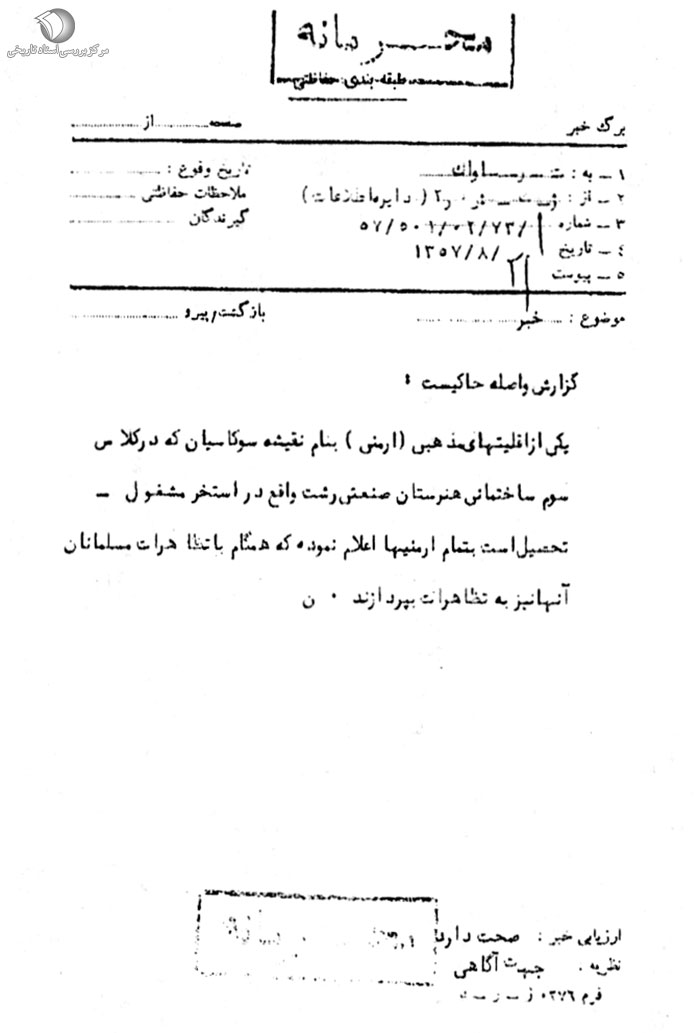 مرکز بررسی اسناد تاریخی
محرمانه
طبقه بندی حفاظتی
برگ خبر
صفحه از
۱ ـ به : ساواک
تاریخ وقوع :
۲ ـ از : (دایره اطلاعات)
ملاحظات حفاظتی
۳ ـ شماره ۵۷/۵۰۱/۰۲/۷۳/
گیرندگان
۴ ـ تاریخ /۱۳۵۷/۸
۵ ـ پیوست
موضوع : خبر
بازگشت/پیرو
گزارش واصله حاکیست :
یکی از اقلیتهای مذهبی (ارمنی) بنام سوکاسیان که در کلاس
سوم ساختمانی هنرستان صنعتی رشت واقع در استخر مشغول ـ
تحصیل است بتمام ارمنیها اعلام نموده که همگام با تظاهرات مسلمانان
آنها نیز به تظاهرات بپردازند ۰ ن
محرمانه
ارزیابی خبر : صحت دارد
نظریه . جهت آگاهی
فرم